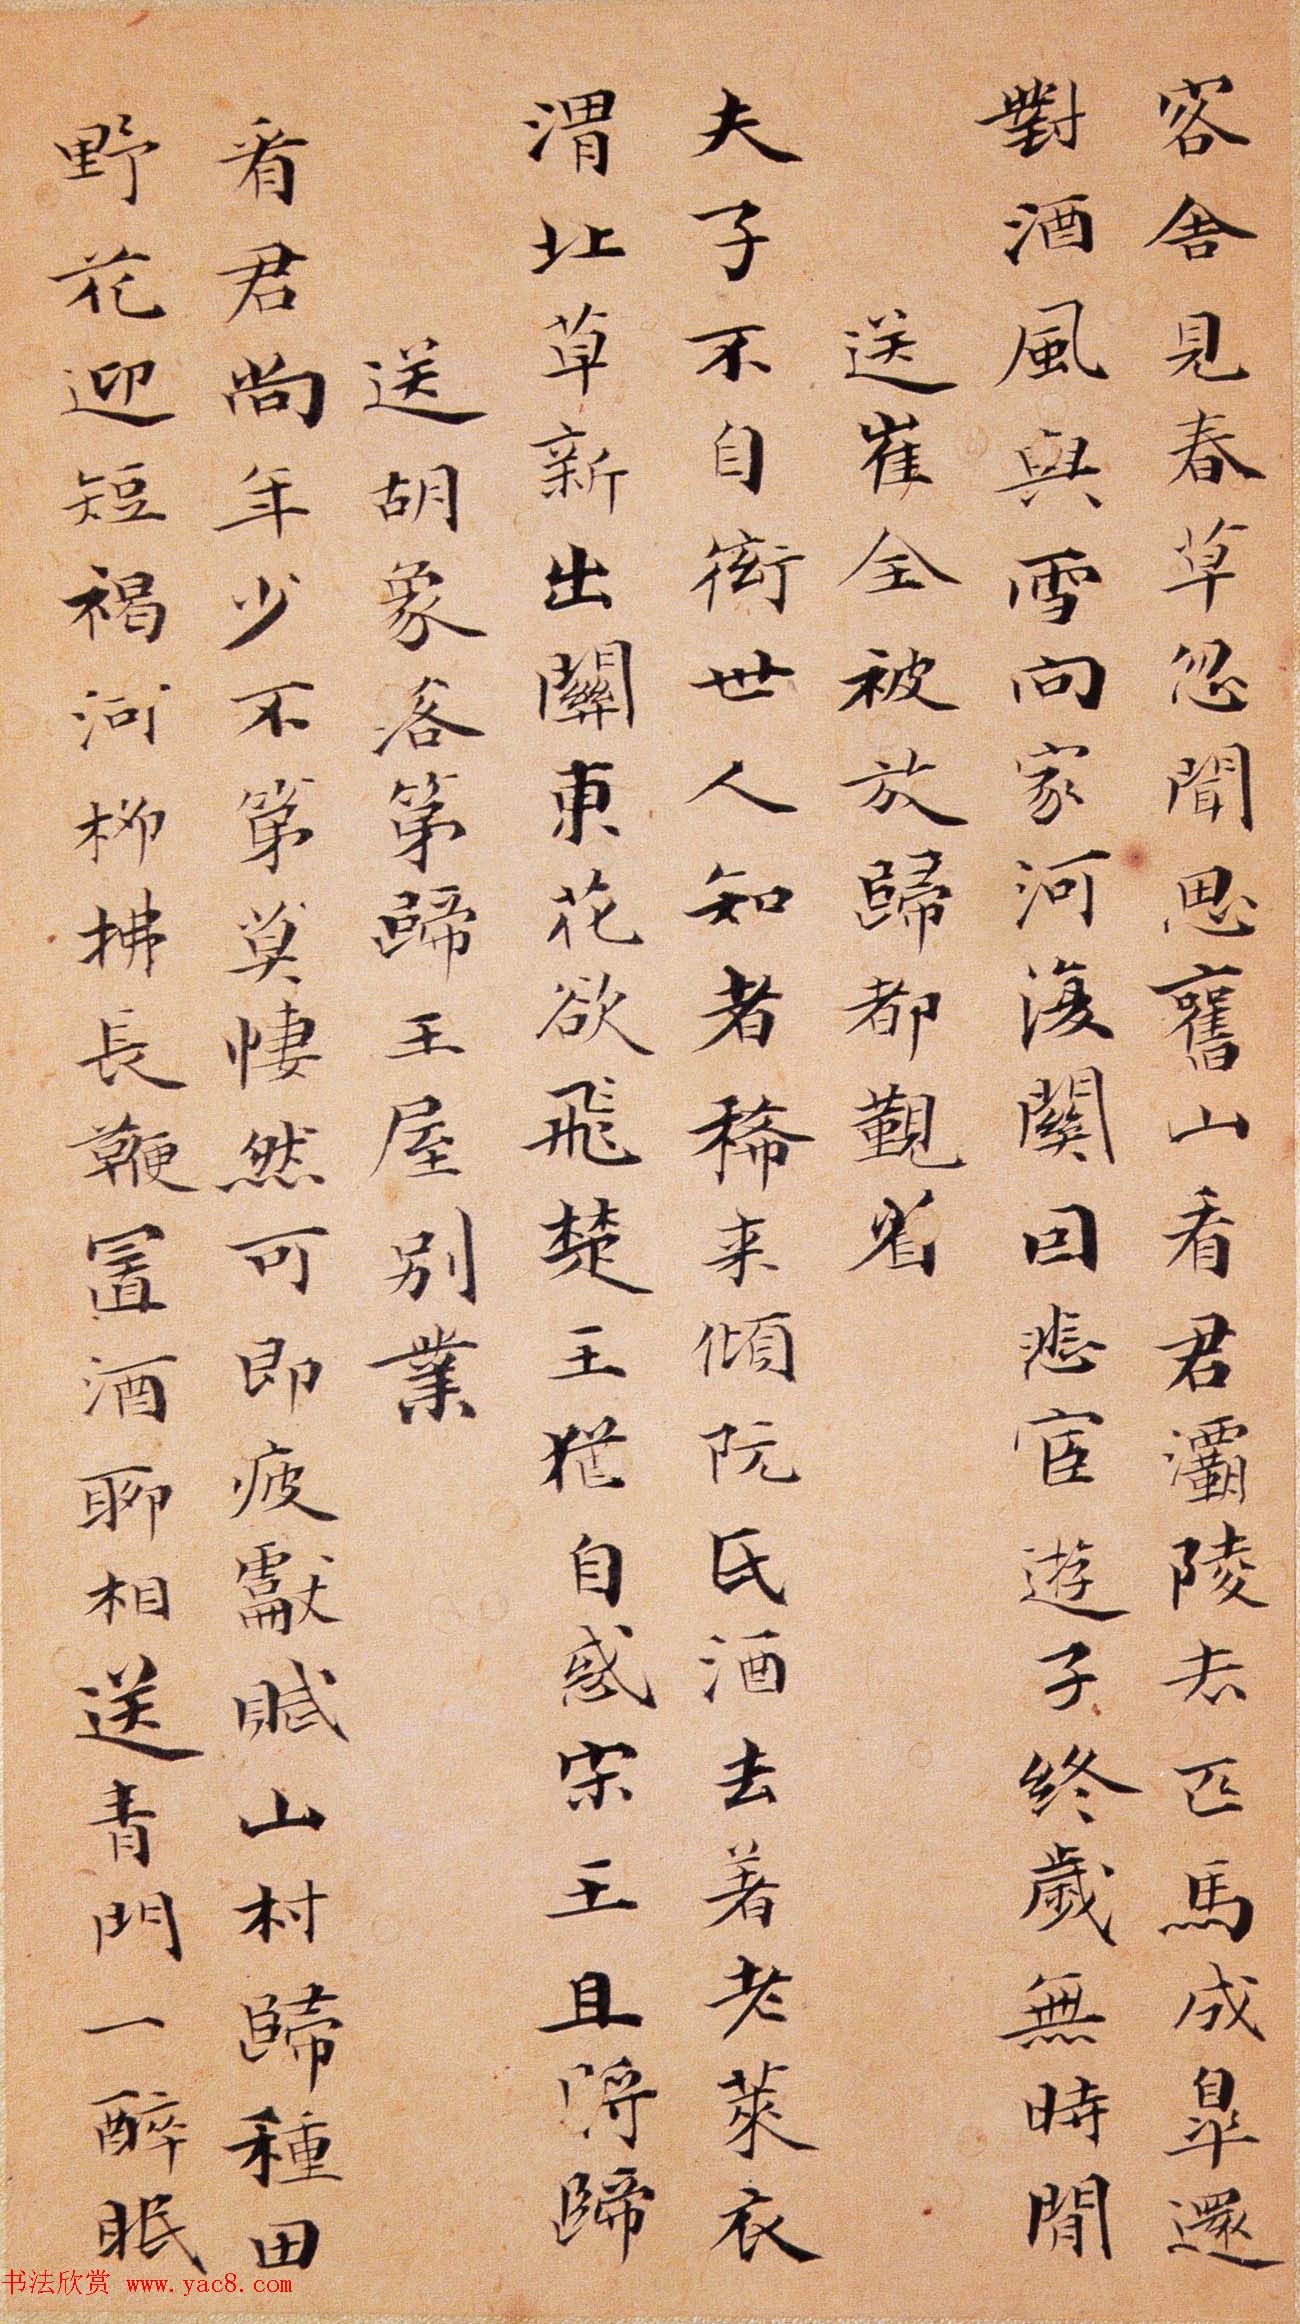 客舍見春草忽聞思舊山看君灞陵去匹馬成皐還
對酒風與雪向家河復關回悲宦遊子終歲無時閒
送崔全被放歸都覲省
夫子不自衒世人知者稀来傾阮氏酒去著老萊衣
渭北草新出關東花欲飛楚王猶自惑宋玉且將歸
送胡象落第歸王屋別業
看君尚年少不第莫悽然可即疲獻賦山村歸種田
野花迎短褐河柳拂長鞭置酒聊相送青門一醉眠
书法欣赏 www.yac8.com